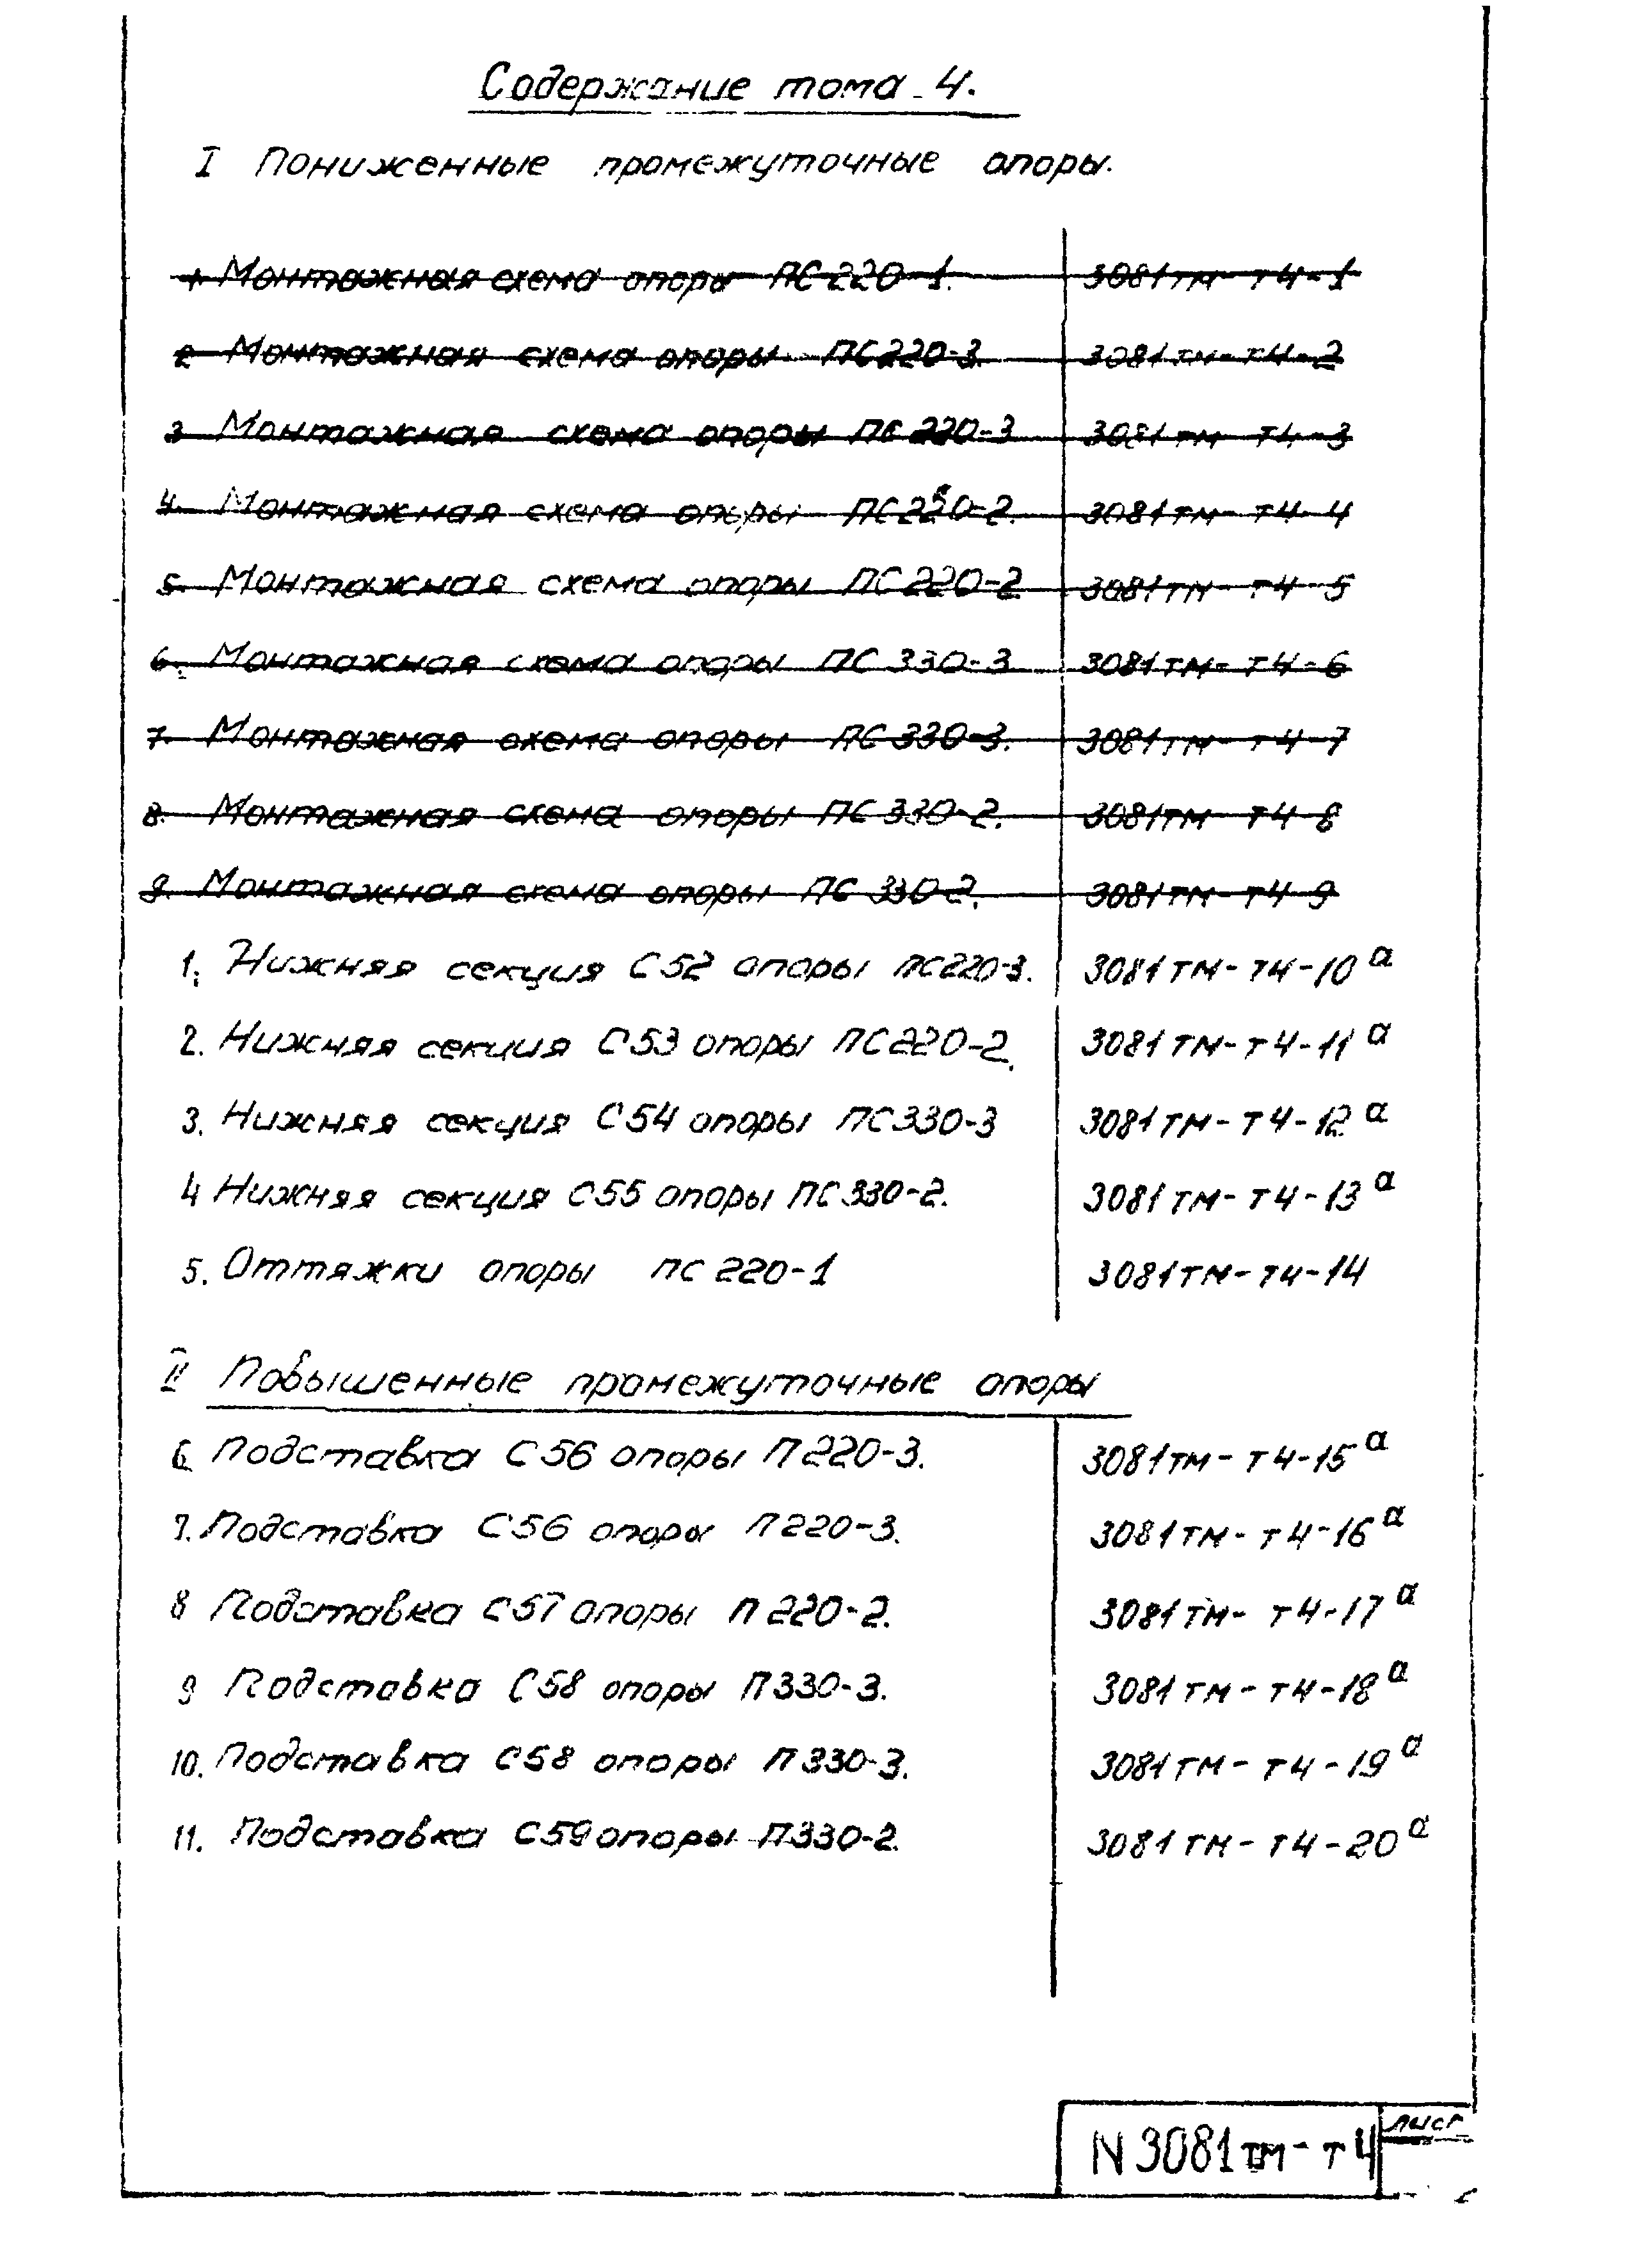 Содержание тома 4.
I Пониженные промежуточные опоры.
1. Монтажная схема опоры ПС220-1. 3081тм-т4-1
2 Монтажная схема опоры ПС220-3. 3081тм-т4-2
3 Монтажная схема опоры ПС220-3 3081тм-т4-3
4. Монтажная схема опоры ПС220-2. 3081тм-т4-4
5. Монтажная схема опоры ПС220-2 3081тм-т4-5
6. Монтажная схема опоры ПС330-3 3081тм-т4-6
7. Монтажная схема опоры ПС330-3. 3081тм-т4-7
8. Монтажная схема опоры ПС330-2. 3081тм-т4-8
9. Монтажная схема опоры ПС330-2. 3081тм-т4-9
1. Нижняя секция С52 опоры ПС220-3. 3081тм-т4-10а
2. Нижняя секция С53 опоры ПС220-2. 3081тм-т4-11а
3. Нижняя секция С54 опоры ПС330-3 3081тм-т4-12а
4 Нижняя секция С55 опоры ПС330-2. 3081тм-т4-13а
5. Оттяжки опоры ПС220-1 3081тм-т4-14
II Повышенные промежуточные опоры
6. Подставка С56 опоры П220-3. 3081тм-т4-15а
7. Подставка С56 опоры П220-3. 3081тм-т4-16а
8 Подставка С57 опоры П220-2. 3081тм-т4-17а
9 Подставка С58 опоры П330-3. 3081тм-т4-18а
10. Подставка С58 опоры П330-3. 3081тм-т4-19а
11. Подставка С59 опоры П330-2. 3081тм-т4-20а
лист
N3081тм-т4